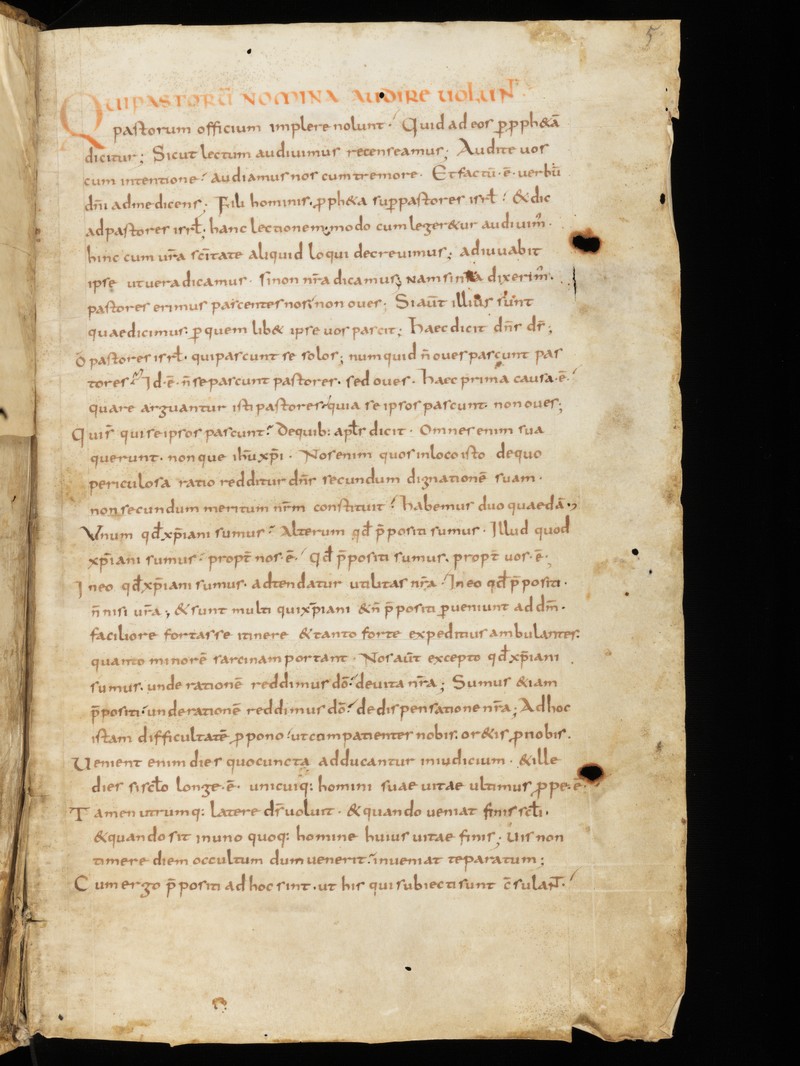 5
QUI PASTORŪ NOMINA AUDIRE UOLUNT̄
pastorum officium implere nolunt. Quid ad eos p̱p ph&ā
dicitur; Sicut lectum audiuimus recenseamus; Audite uos
cum intentione? audiamus nos cum tremore. Et factū. ē. uerbū
dn̄i ad me dicens; Fili hominis. p̱ph&a sup̱ pastores isrƚ? & dic
ad pastores isrƚ; hanc lectionem, modo cum leger&ur audiuim̓.
hinc cum ur̄a sc̄itate aliquid loqui decreuimus; adiuuabit
ipse ut uera dicamus. si non nr̄a dicamus; Nam si nr̄a dixerim̓.
pastores erimus pascentes nos, non oues; Si aūt illius sunt
quae dicimus. p̱ quem lib& ipse uos pascit; Haec dicit dn̄s ds̄;
ō pastores isrƚ. qui pascunt se solos; numquid n̄ oues pascunt pas
tores? Id. ē. n̄ se pascunt pastores. sed oues. haec prima causa. ē.
quare arguantur isti pastores, quia se ipsos pascunt. non oues;
Qui s̄ qui se ipsos pascunt? De quib: apƚs dicit. Omnes enim sua
querunt. non que ihū xp̄i. Nos enim quos in loco isto de quo
periculosa ratio redditur dn̄s secundum dignationē suam.
non secundum meritum nr̄m constituit? habemus duo quaedā.
Vnum qđ xp̄iani sumus? Alterum qđ p̄positi sumus. Illud quod
xp̄iani sumus? propt̄ nos. ē. Qđ p̄positi sumus. propt̄ uos. ē.
In eo qđ xp̄iani sumus. adtendatur utilitas nr̄a. In eo qđ p̄positi.
n̄ nisi ur̄a; & sunt multi qui xp̄iani & n̄ p̄positi p̱ueniunt ad dm̄.
faciliore fortasse itinere & tanto forte expeditius ambulantes.
quanto minorē sarcinam portant. Nos aūt excepto qđ xp̄iani
sumus. unde rationē reddimus dō? de uita nr̄a; Sumus & iam
p̄positi? unde rationē reddimus dō? de dispensatione nr̄a; Ad hoc
istam difficultatē p̱pono? ut compatientes nobis. or&is p̱ nobis.
Uenient enim dies quo cuncta adducantur in iudicium. & ille
dies si sc̄lo longe. ē. unicuiq: homini suae uitae ultimus p̱pe. ē.
Tamen utrumq: latere ds̄ uoluit. & quando ueniat finis sc̄li.
& quando sit in uno quoq: homine huius uitae finis; Uis non
timere diem occultum dum uenerit? inueniat te paratum;
Cum ergo p̄positi ad hoc sint. ut his qui subiecti sunt c̄sulant̄.